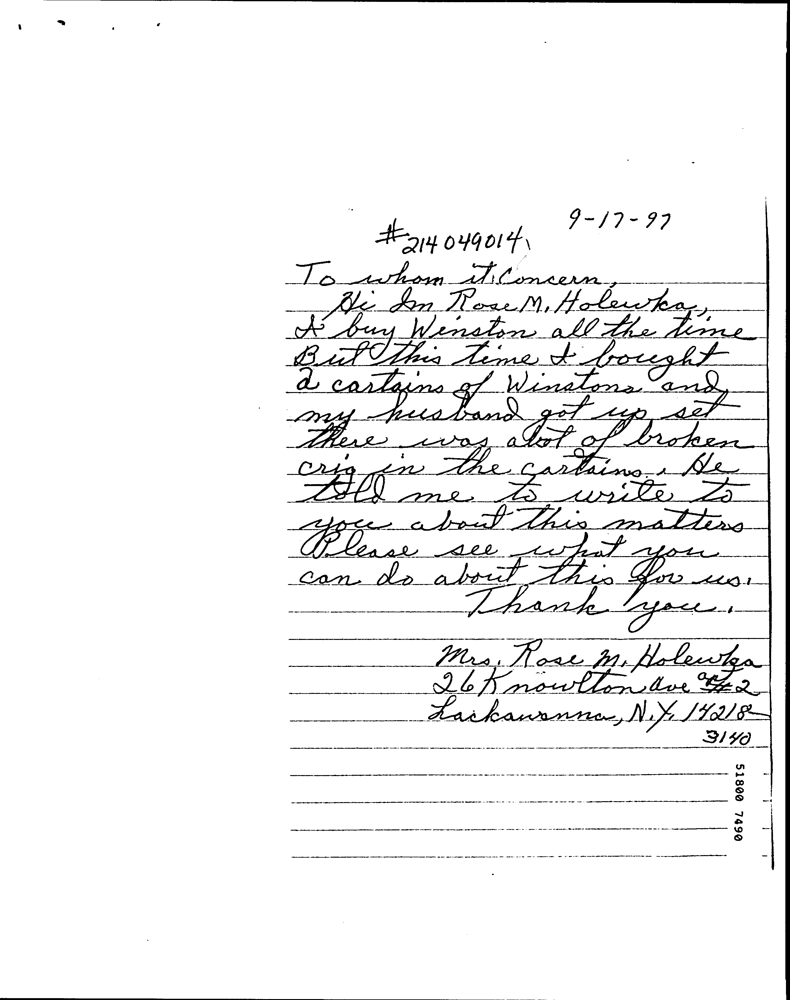 9-17-97
#214049014
To whom it Concern,
Hi Im Rose M. Holewka,
I buy Winston all the time
But this time I bought
2 cartains of Winstons and
my husband got up set
there was alot of broken
crig in the cartains. He
told me to write to
you about this matters
Please see what you
can do about this for us.
Thank you.
Mrs. Rose M. Holewka
26 Knowlton Ave apt #2
Lackawanna, N.Y. 14218-
3140
51800 7490